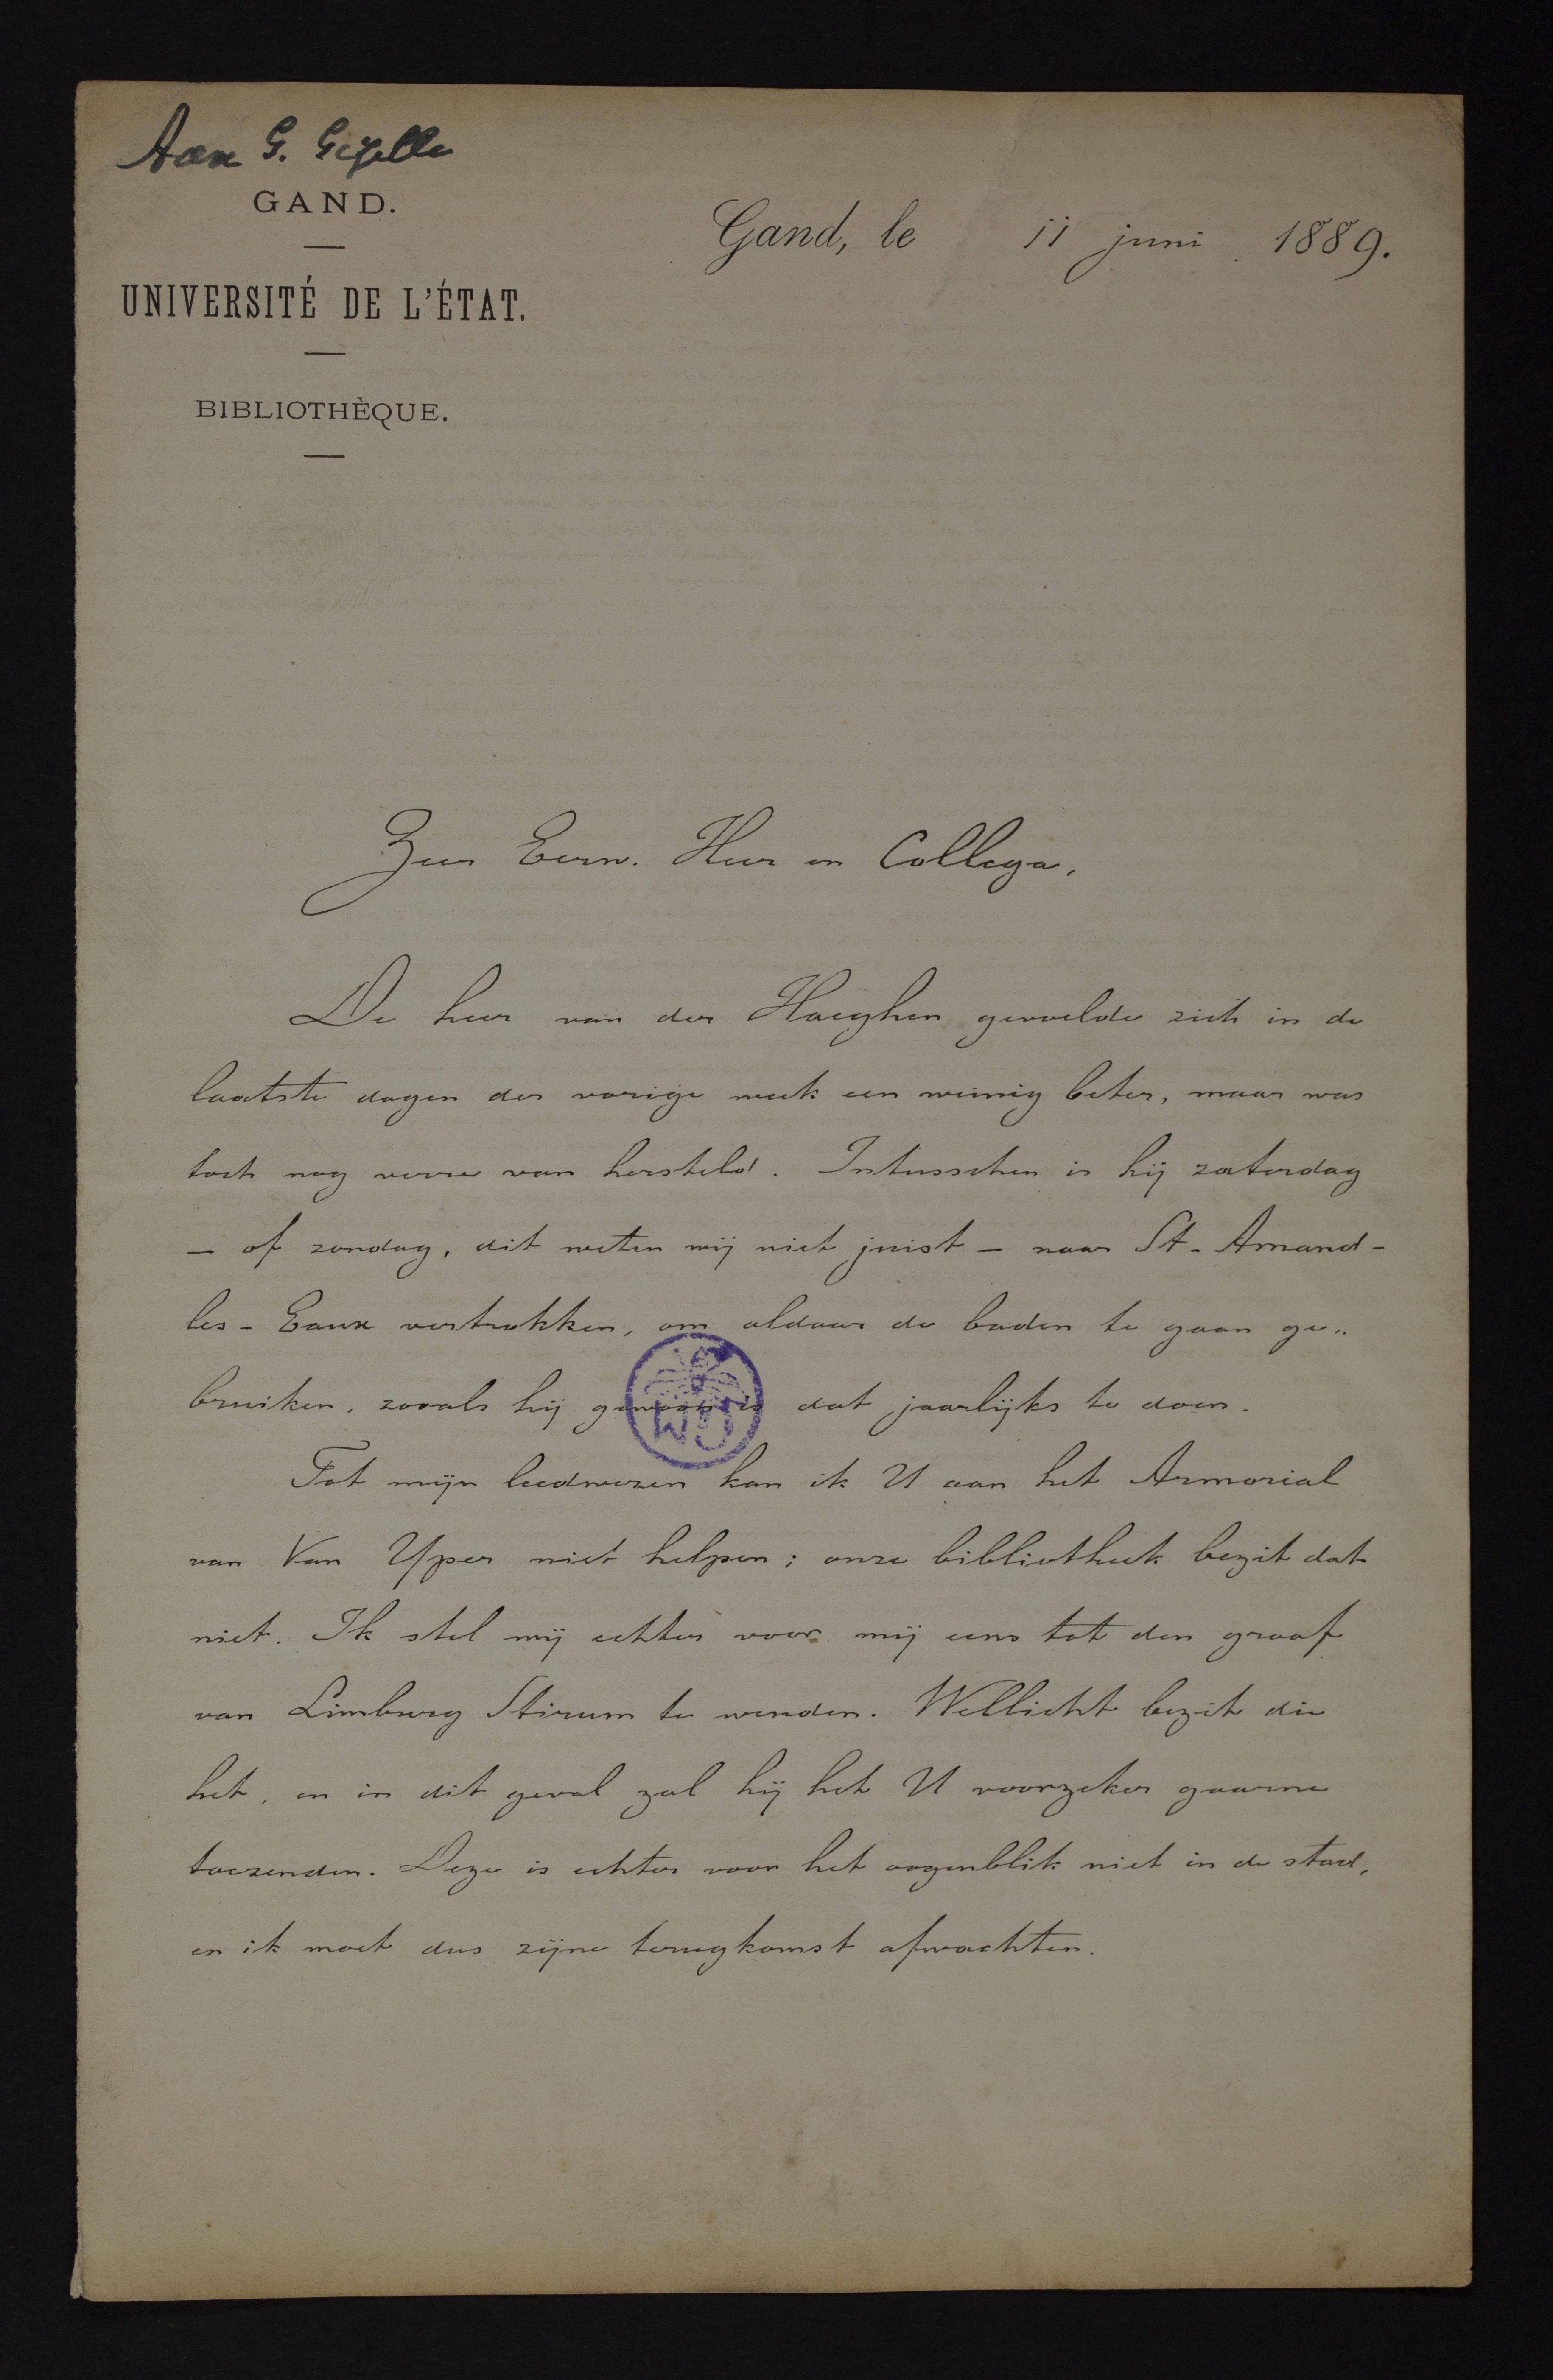 Aan G. Gezelle
GAND.
UNIVERSITÉ DE L'ÉTAT.
BIBLIOTHÈQUE.
Gand, le 11 juni 1889.
Zeer Eerw. Heer en Collega,
De heer van der Haeghen gevoelde zich in de
laatste dagen der vorige week een weinig beter, maar was
toch nog verre van hersteld. Intusschen is hij zaterdag
— of zondag, dit weten wij niet juist — naar St-Amand-
les-Eaux vertrokken, om aldaar de baden te gaan ge-
bruiken, zooals hij gewoon is dat jaarlijks te doen.
Tot mijn leedwezen kan ik U aan het Armorial
van Van Yper niet helpen; onze bibliotheek bezit dat
niet. Ik stel mij echter voor mij eens tot den graaf
van Limburg Stirum te wenden. Wellicht bezit die
het, en in dit geval zal hij het U voorzeker gaarne
toezenden. Deze is echter voor het oogenblik niet in de stad,
en ik moet dus zijne terugkomst afwachten.